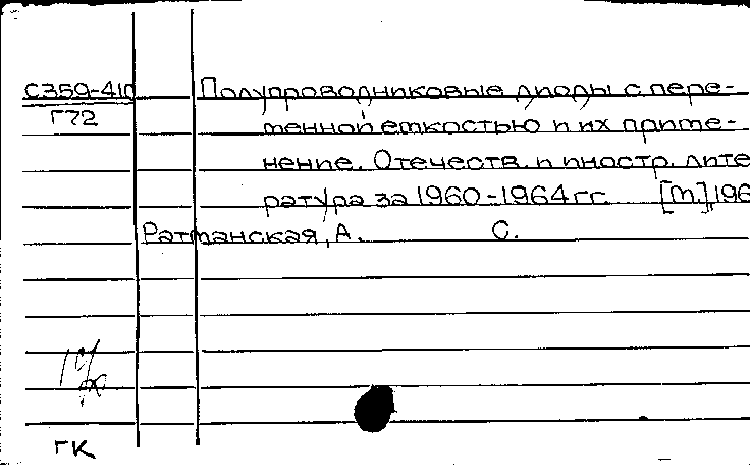 С359-410 Полупроводниковые диоды с пере-
Г72 менной емкостью и их приме-
нение. Отечеств. и иностр. лите
ратура за 1960-1964 гг. [М.], 196
Ратманская, А. С.
ГК